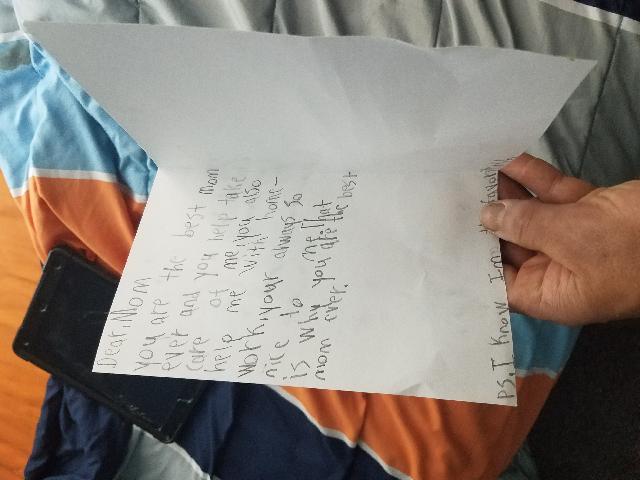 Dear, Mom
you are the best mom
ever and you help take
care of me, you also
help me with home-
work, your always so
nice to me. That
is why you are the best
mom ever.
PS. I know I'm